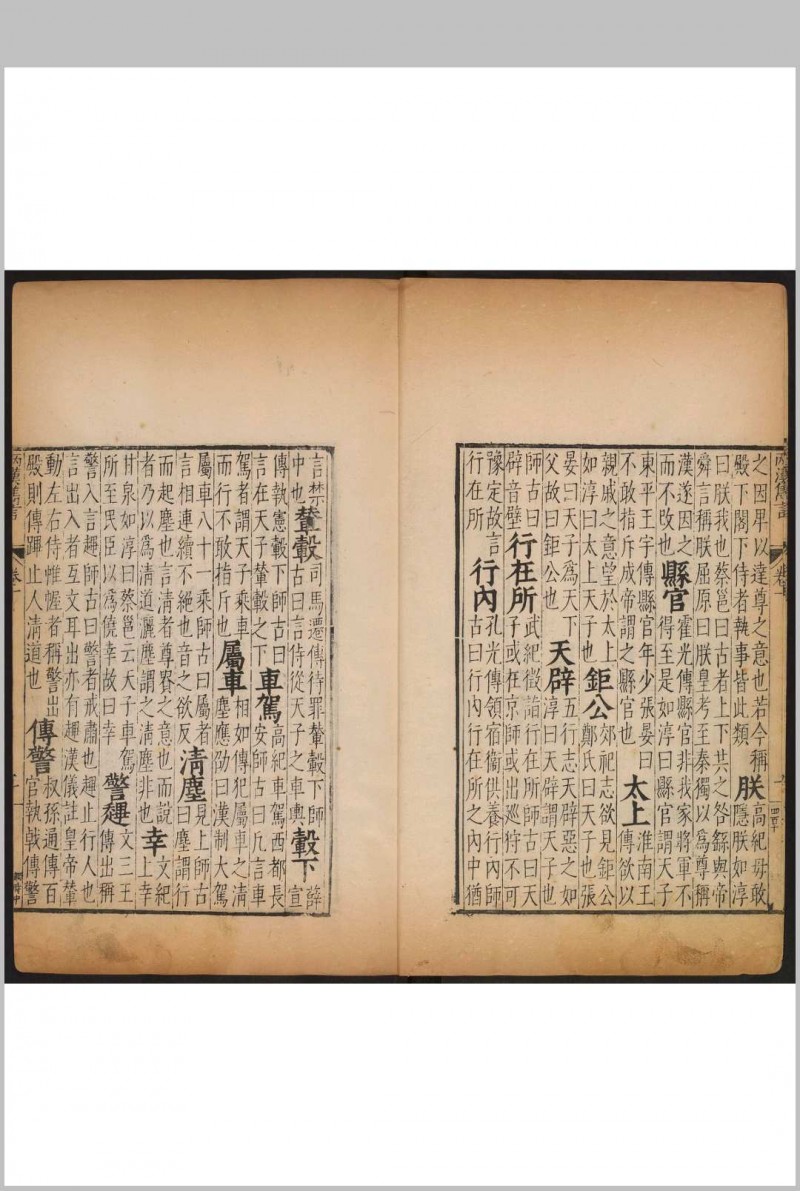 之因卑以達尊之意也若今稱
殿下閣下侍者執事皆此類
朕
高紀毋敢
隱朕如淳
曰朕我也蔡邕曰古者上下共之咎繇與帝
舜言稱朕屈原曰朕皇考至秦獨以爲尊稱
漢遂因之
而不改也
縣官
霍光傳縣官非我家將軍不
得至是如淳曰縣官謂天子
東平王宇傳縣官年少張晏曰
不敢指斥成帝謂之縣官也
太上
淮南王
傳欲以
親戚之意望於太上
如淳曰太上天子也
鉅公
郊祀志欲見鉅公
鄭氏曰天子也張
晏曰天子爲天下
父故曰鉅公也
天辟
五行志天辟惡之如
淳曰天辟謂天子也
師古曰
辟音壁
行在所
武紀徵詣行在所師古曰天
子或在京師或出巡狩不可
豫定故言
行在所
行內
孔光傳領宿衞供養行內師
古曰行內行在所之內中猶
言禁
中也
輦轂
司馬遷傳待罪輦轂下師
古曰言侍從天子之車輿
轂下
薛
宣
傳執憲轂下師古曰
言在天子輦轂之下
車駕
高紀車駕西都長
安師古曰凡言車
駕者謂天子乘車
而行不敢指斥也
屬車
相如傳犯屬車之清
塵應劭曰漢制大駕
屬車八十一乘師古曰屬者
言相連續不絕也音之欲反
清塵
見上師古
曰塵謂行
而起塵也言清者尊貴之意也而說
者乃以爲清道灑塵謂之清塵非也
幸
文紀
上幸
甘泉如淳曰蔡邕云天子車駕
所至民臣以爲僥幸故曰幸
警趯
文三王
傳出稱
警入言趯師古曰警者戒肅也趯止行人也
言出入者互文耳出亦有趯漢儀註皇帝輦
動左右侍帷幄者稱警出
殿則傳蹕止人清道也
傳警
叔孫通傳百
官執戟傳警
兩漢雋言
卷一